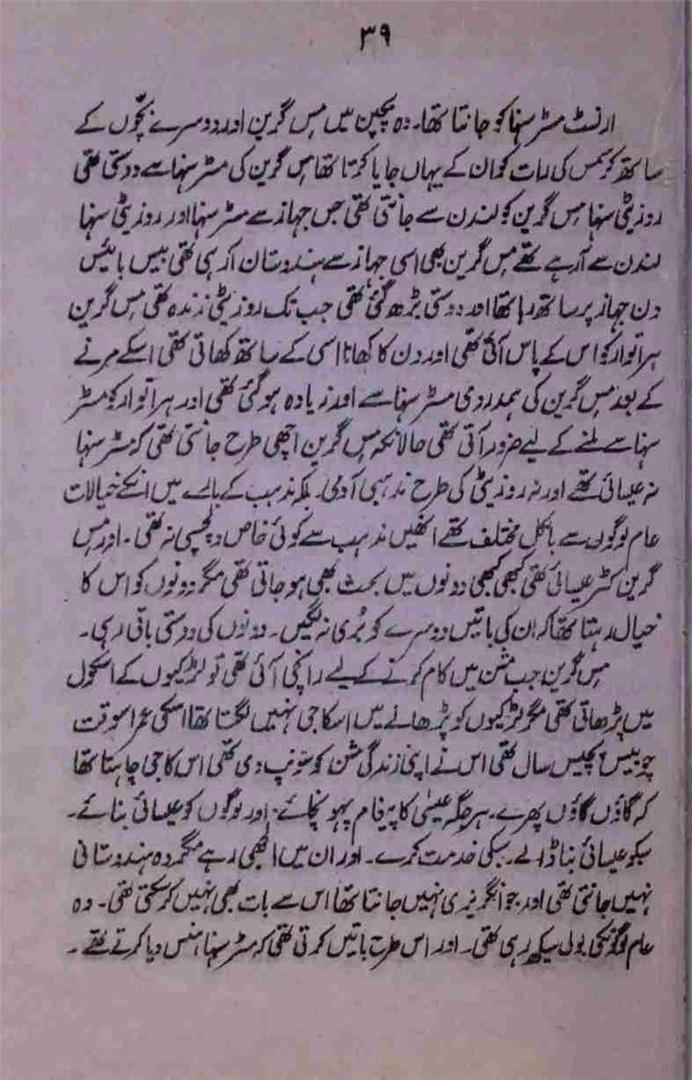 ۳۹
ارنسٹ مسٹر سنہا کو جانتا تھا۔ وہ بچپن میں مس گرین اور دوسرے بچّوں کے
ساتھ کرسمس کی رات کو ان کے یہاں جایا کرتا تھا مس گرین کی مسٹر سنہا سے دوستی تھی
روزیٹی سنہا مس گرین کو لندن سے جانتی تھی جس جہاز سے مسٹر سنہا اور روزیٹی سنہا
لندن سے آرہے تھے مس گرین بھی اسی جہاز سے ہندوستان آرہی تھی بیس بائیس
دن جہاز پر ساتھ رہا تھا اور دوستی بڑھ گئی تھی جب تک روزیٹی زندہ تھی مس گرین
ہر اتوار کو اس کے پاس آتی تھی اور دن کا کھانا اسی کے ساتھ کھاتی تھی اسکے مرنے
کے بعد مس گرین کی ہمدردی مسٹر سنہا سے اور زیادہ ہوگئی تھی اور ہر اتوار کو مسٹر
سنہا سے ملنے کے لیے ضرور آتی تھی حالانکہ مس گرین اچھی طرح جانتی تھی کہ مسٹر سنہا
نہ عیسائی تھے اور نہ روزیٹی کی طرح مذہبی آدمی۔ بلکہ مذہب کے بارے میں انکے خیالات
عام لوگوں سے بالکل مختلف تھے انھیں مذہب سے کوئی خاص دلچسپی نہ تھی۔ اور مس
گرین کٹر عیسائی تھی کبھی کبھی دونوں میں بحث بھی ہو جاتی تھی مگر دونوں کو اس کا
خیال رہتا تھا کہ ان کی باتیں دوسرے کو بُری نہ لگیں۔ دونوں کی دوستی باقی رہی۔
مس گرین جب مشن میں کام کرنے کے لیے رانچی آئی تھی تو لڑکیوں کے اسکول
میں پڑھاتی تھی مگر لڑکیوں کو پڑھانے میں اسکا جی نہیں لگتا تھا اسکی عمر اسوقت
چوبیس پچیس سال تھی اس نے اپنی زندگی مشن کو سونپ دی تھی اس کا جی چاہتا تھا
کہ گاؤں گاؤں پھرے۔ ہر جگہ عیسٰی کا پیغام پہونچائے۔ اور لوگوں کو عیسائی بنائے۔
سبکو عیسائی بنا ڈالے۔ سبکی خدمت کرے۔ اور ان میں الجھی رہے مگر وہ ہندوستانی
نہیں جانتی تھی اور جو انگریزی نہیں جانتا تھا اس سے بات بھی نہیں کرسکتی تھی۔ وہ
عام لوگونکی بولی سیکھ رہی تھی۔ اور اس طرح باتیں کرتی تھی کہ مسٹر سنہا ہنس دیا کرتے تھے۔